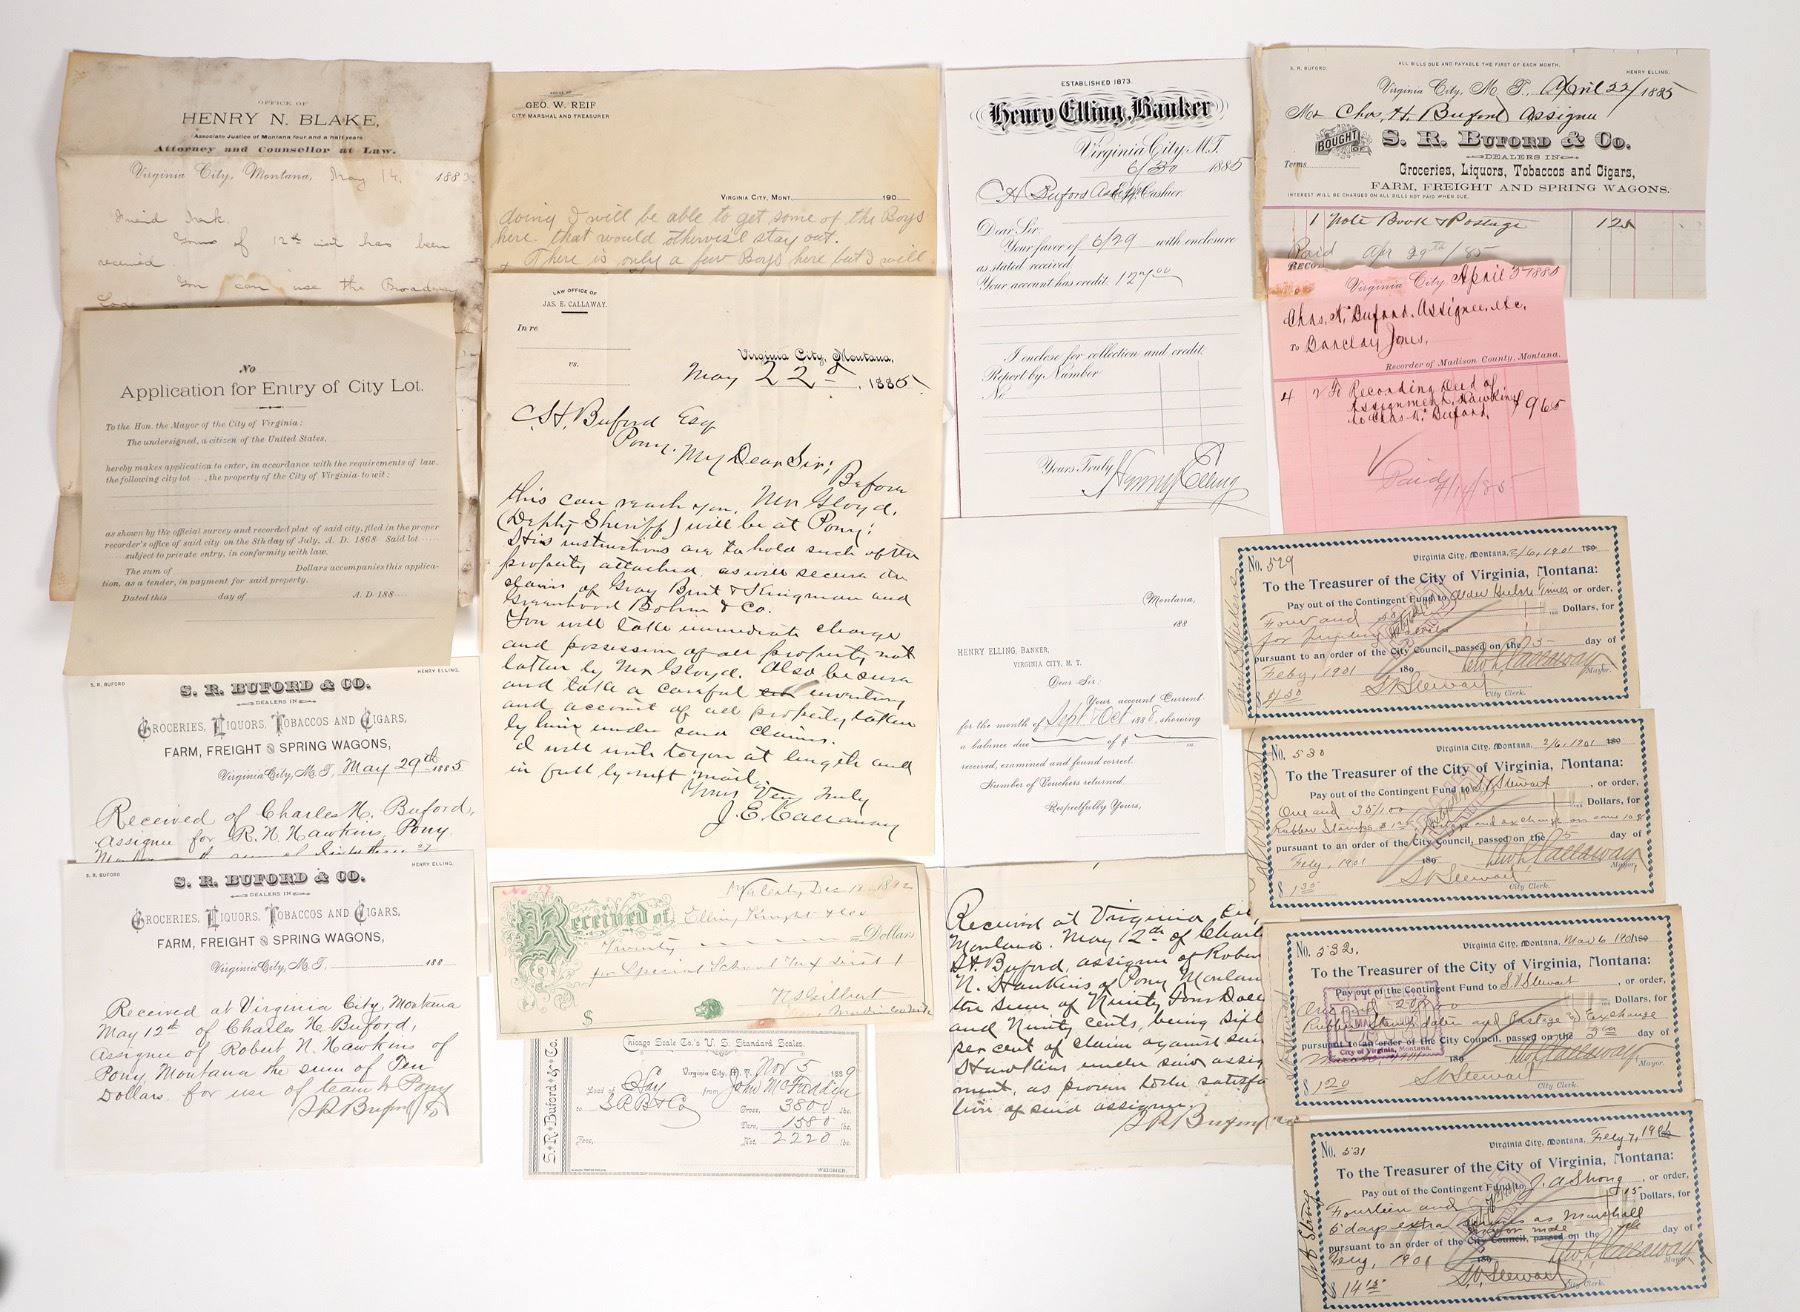 OFFICE OF
HENRY N. BLAKE,
(Associate Justice of Montana four and a half years
Attorney and Counsellor at Law.
Virginia City, Montana, May 14, 1883
Friend
Yours of 12th inst has been
received.
You can use the Broadway
No
Application for Entry of City Lot.
To the Hon. the Mayor of the City of Virginia:
The undersigned, a citizen of the United States,
hereby makes application to enter, in accordance with the requirements of law,
the following city lot , the property of the City of Virginia to wit:
as shown by the official survey and recorded plat of said city, filed in the proper
recorder's office of said city on the 8th day of July, A. D. 1868. Said lot
subject to private entry, in conformity with law.
The sum of Dollars accompanies this applica-
tion, as a tender, in payment for said property.
Dated this day of A. D. 188
S. R. BUFORD HENRY ELLING.
S. R. BUFORD & CO.
DEALERS IN
GROCERIES, LIQUORS, TOBACCOS AND CIGARS,
FARM, FREIGHT AND SPRING WAGONS,
Virginia City, M. T., May 29th 1885
Received of Charles H. Buford,
Assignee for R. N. Hawkins, Pony
S. R. BUFORD HENRY ELLING.
S. R. BUFORD & CO.
DEALERS IN
GROCERIES, LIQUORS, TOBACCOS AND CIGARS,
FARM, FREIGHT AND SPRING WAGONS,
Virginia City, M. T., 188
Received at Virginia City, Montana
May 12th of Charles H. Buford,
Assignee of Robert N. Hawkins of
Pony, Montana the sum of Ten
Dollars for use of team to Pony
S R Buford
GEO. W. REIF
CITY MARSHAL AND TREASURER
VIRGINIA CITY, MONT. 190
doing I will be able to get some of the Boys
here that would otherwise stay out.
There is only a few Boys here but I will
LAW OFFICE OF
JAS. E. CALLAWAY.
In re
vs.
Virginia City, Montana,
May 22d, 1885
C. H. Buford Esq
Pony.
My Dear Sir; Before
this can reach you, Mr Gloyd,
(Depty Sheriff) will be at Pony;
His instructions are to hold such of the
property attached, as will secure the
claims of Gray Burt & Kingman and
Greenhood Bohm & Co.
You will take immediate charge
and possession of all property not
taken by Mr Gloyd. Also be sure
and take a careful inventory
and account of all property taken
by him under said claims.
I will write to you at length and
in full by next mail.
Yours Very Truly
J. E. Callaway
No. 17
Va City Dec 18 1882
Received of Elling Knight & Co
Twenty Dollars
for Special School Tax Dist 1
N S Gilbert
$
S. R. Buford & Co.
Chicago Scale Co.'s U. S. Standard Scales.
Virginia City, M. T. Nov 5 1889
Load of Hay from John McFadden
to S R B & Co Gross, 3800 lbs.
Tare, 1580 lbs.
Fees, Net, 2220 lbs.
WEIGHER.
ESTABLISHED 1873.
Henry Elling, Banker
Virginia City, M. T.
6/30 1885
C H Buford Cashier.
Dear Sir:
Your favor of 6/29 with enclosure
as stated received.
Your account has credit: 127.00
I enclose for collection and credit.
Report by Number
No.
Yours Truly
Henry Elling
(Montana,
188
HENRY ELLING, BANKER,
VIRGINIA CITY, M. T.
Dear Sir:
Your account Current
for the month of Sept & Oct 1888, showing
a balance due of $
received, examined and found correct.
Number of Vouchers returned,
Respectfully Yours,
Received at Virginia
Montana. May 12th of Charl
H. Buford, assignee of Rober
N. Hawkins of Pony Montan
the sum of Ninety four Doll
and Ninety cents, being
per cent of claim against said
Hawkins under said assig
ment, as proven
tion of said assignee
S R Buford
S. R. BUFORD. ALL BILLS DUE AND PAYABLE THE FIRST OF EACH MONTH. HENRY ELLING.
Virginia City, M. T., April 22/1885
Mr Chas. H. Buford Assignee
BOUGHT OF S. R. BUFORD & CO.
DEALERS IN
Terms Groceries, Liquors, Tobaccos and Cigars,
FARM, FREIGHT AND SPRING WAGONS.
INTEREST WILL BE CHARGED ON ALL BILLS NOT PAID WHEN DUE.
1 Note Book & Postage 125
Paid Apr 29th/85
Virginia City, April 1885
Chas. H. Buford, Assignee, etc,
To Barclay Jones,
Recorder of Madison County, Montana.
4 2 To Recording Deed of
Assignment, Hawkins
to Chas H. Buford, $ 9 65
Paid 4/14/85
No. 529 Virginia City, Montana, 2/6, 1901
To the Treasurer of the City of Virginia, Montana:
Pay out of the Contingent Fund to or order,
Four and 50 Dollars, for
for
pursuant to an order of the City Council, passed on the 5 day of
Feby, 1901 189 Lew L. Callaway Mayor.
$4.50 S. V. Stewart City Clerk.
No. 530 Virginia City, Montana, 2/6, 1901
To the Treasurer of the City of Virginia, Montana:
Pay out of the Contingent Fund to S. V. Stewart , or order,
One and 35/100 Dollars, for
Rubber Stamps
pursuant to an order of the City Council, passed on the 5 day of
Feby, 1901 189 Lew L. Callaway Mayor.
$1.35 S. V. Stewart City Clerk.
No. 532 Virginia City, Montana, Mar 6, 1901
To the Treasurer of the City of Virginia, Montana:
Pay out of the Contingent Fund to S. V. Stewart , or order,
One & 20/100 Dollars, for
Rubber Stamp, dater and Postage & Exchange
pursuant to an order of the City Council, passed on the day of
189 Lew L. Callaway Mayor.
City of Virginia, Montana.
$1.20 S. V. Stewart City Clerk.
No. 531 Virginia City, Montana, Feby 7, 1901
To the Treasurer of the City of Virginia, Montana:
Pay out of the Contingent Fund to J. A Strong , or order,
Fourteen and 15 Dollars, for
5 days extra services as Marshall
pursuant to an order of the City Council, passed on the 7th day of
Feby, 1901 189 Lew L. Callaway Mayor.
$14.15 S. V. Stewart City Clerk.